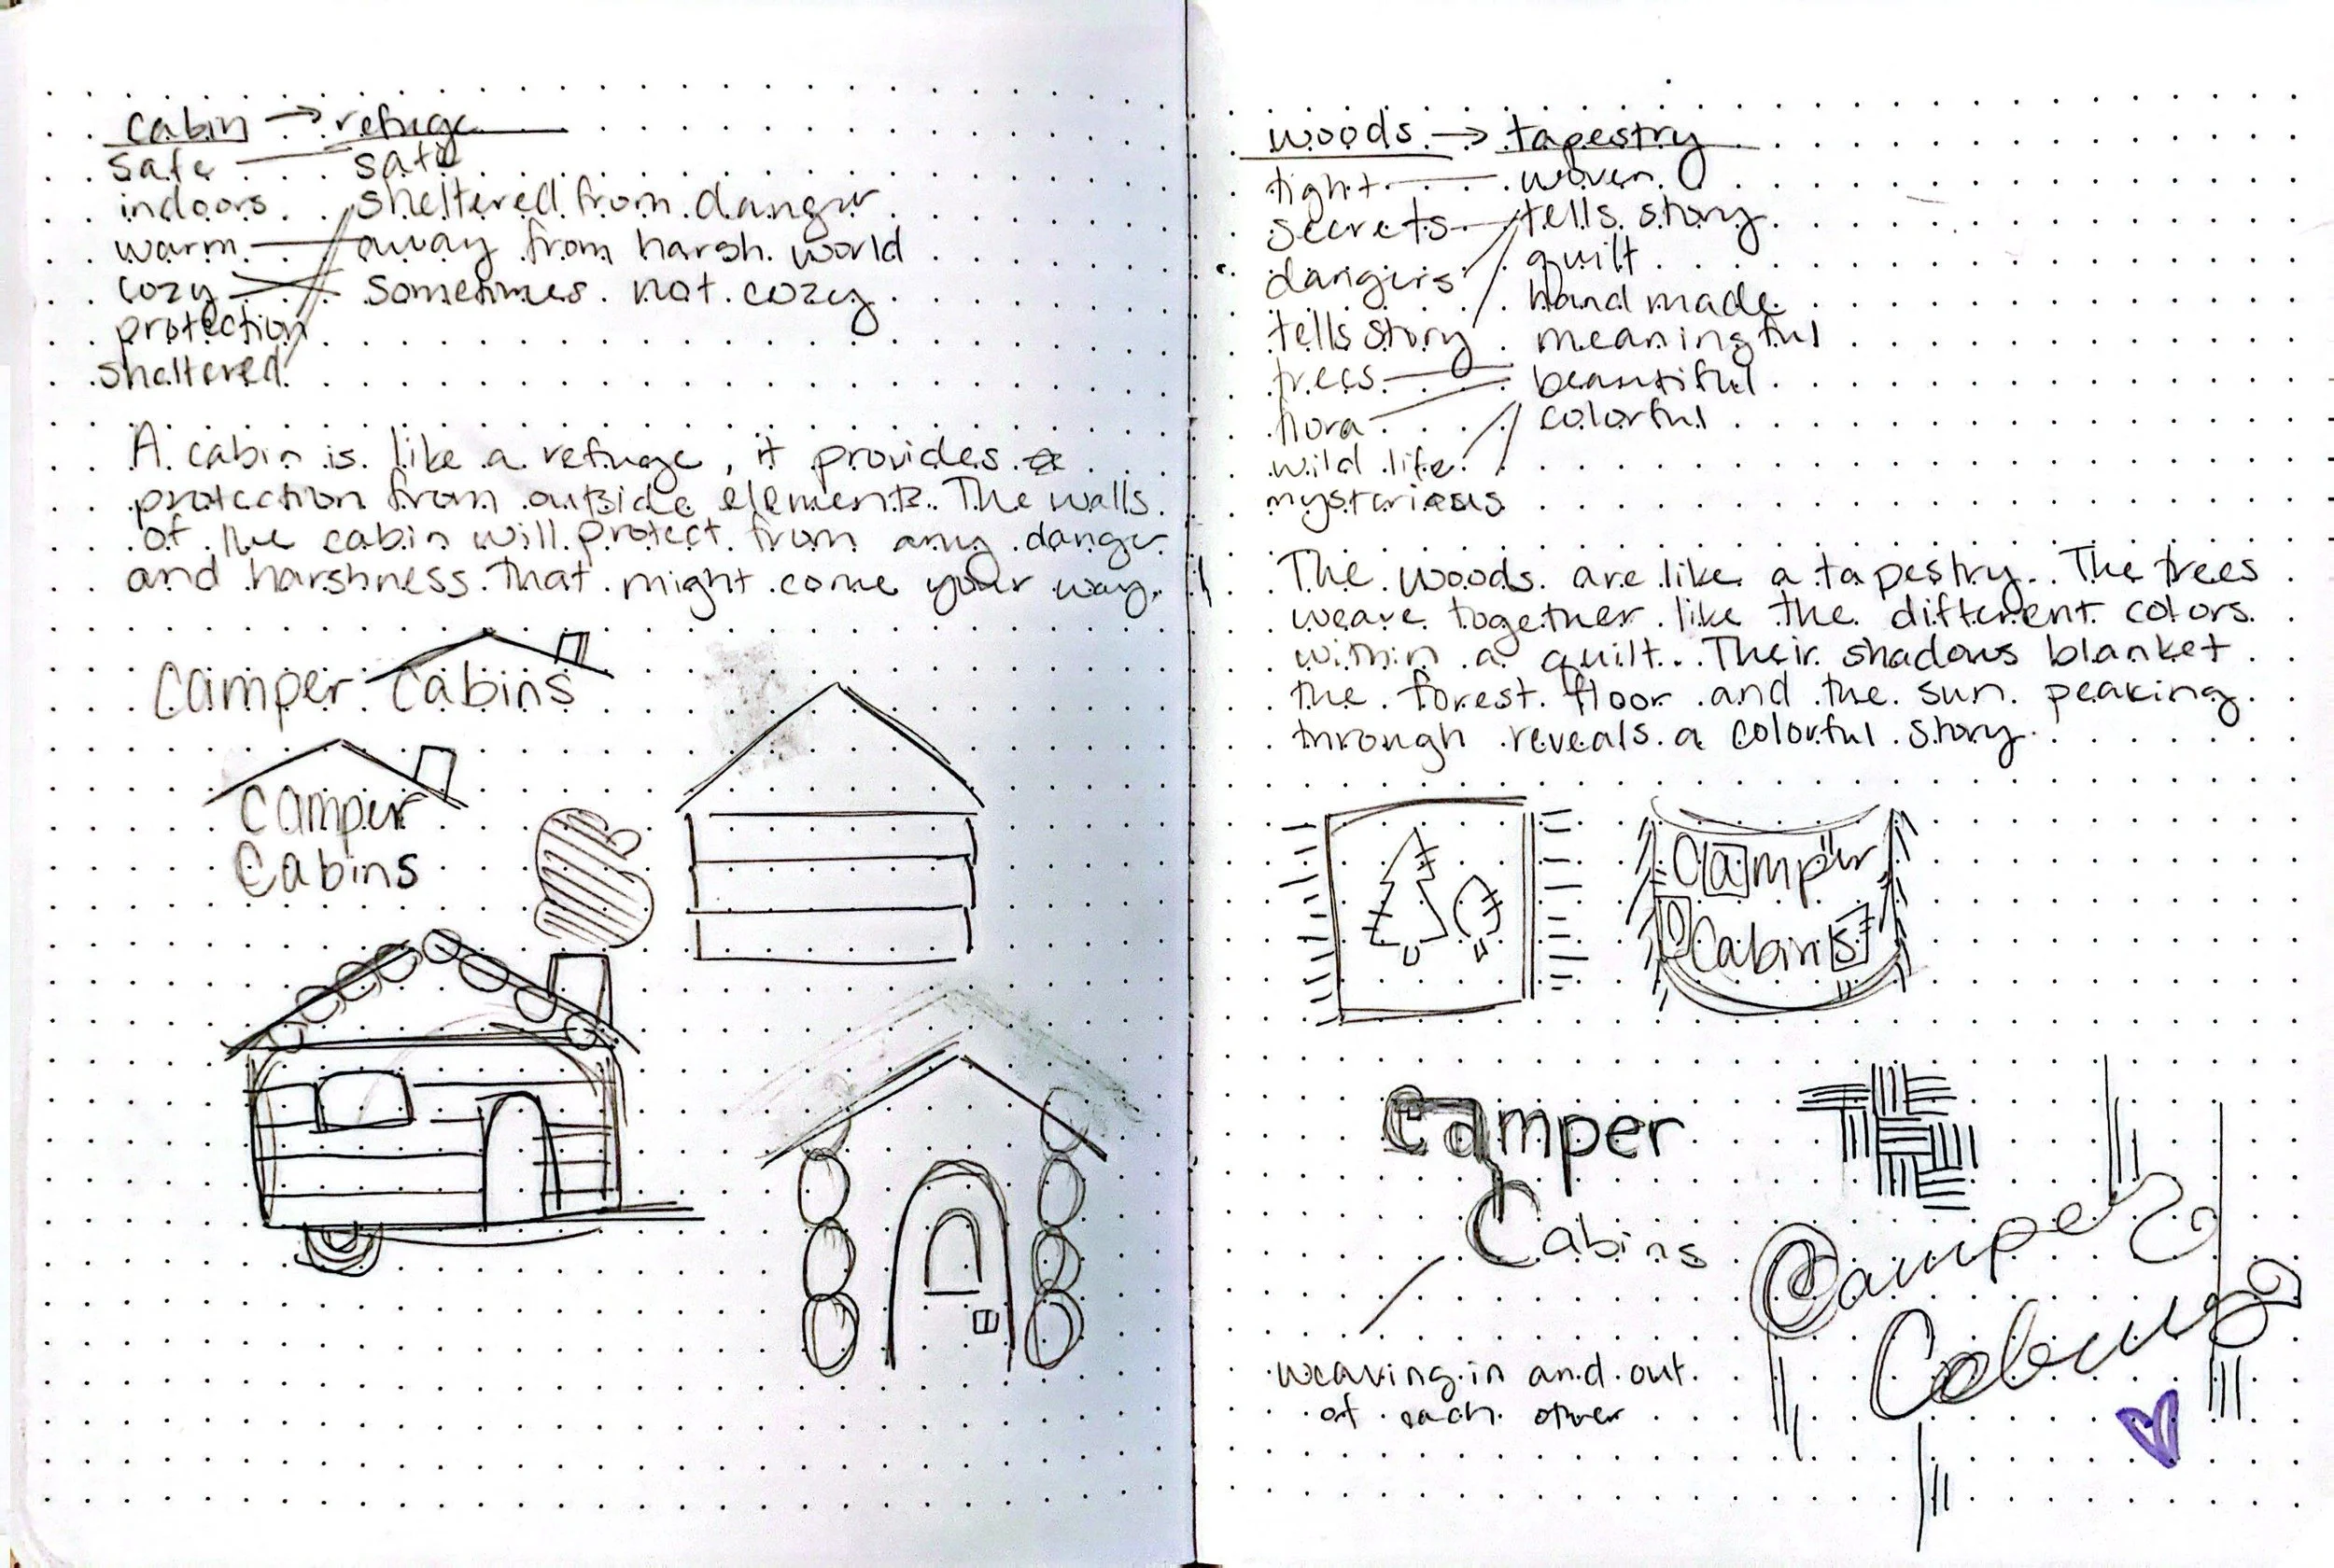 cabin → refuge
safe safe
indoors sheltered from danger
warm away from harsh world
cozy sometimes not cozy
protection
sheltered
A cabin is like a refuge, it provides
protection from outside elements. The walls
of the cabin will protect from any danger
and harshness that might come your way.
camper cabins
camper
cabins
woods → tapestry
tight woven
secrets tells story
dangers quilt
tells story hand made
trees meaningful
flora beautiful
wild life colorful
mysterious
The woods are like a tapestry. The trees
weave together like the different colors
within a quilt. Their shadows blanket
the forest floor and the sun peaking
through reveals a colorful story.
Camper
Cabins
Camper
Cabins
weaving in and out
of each other
Camper
Cabins